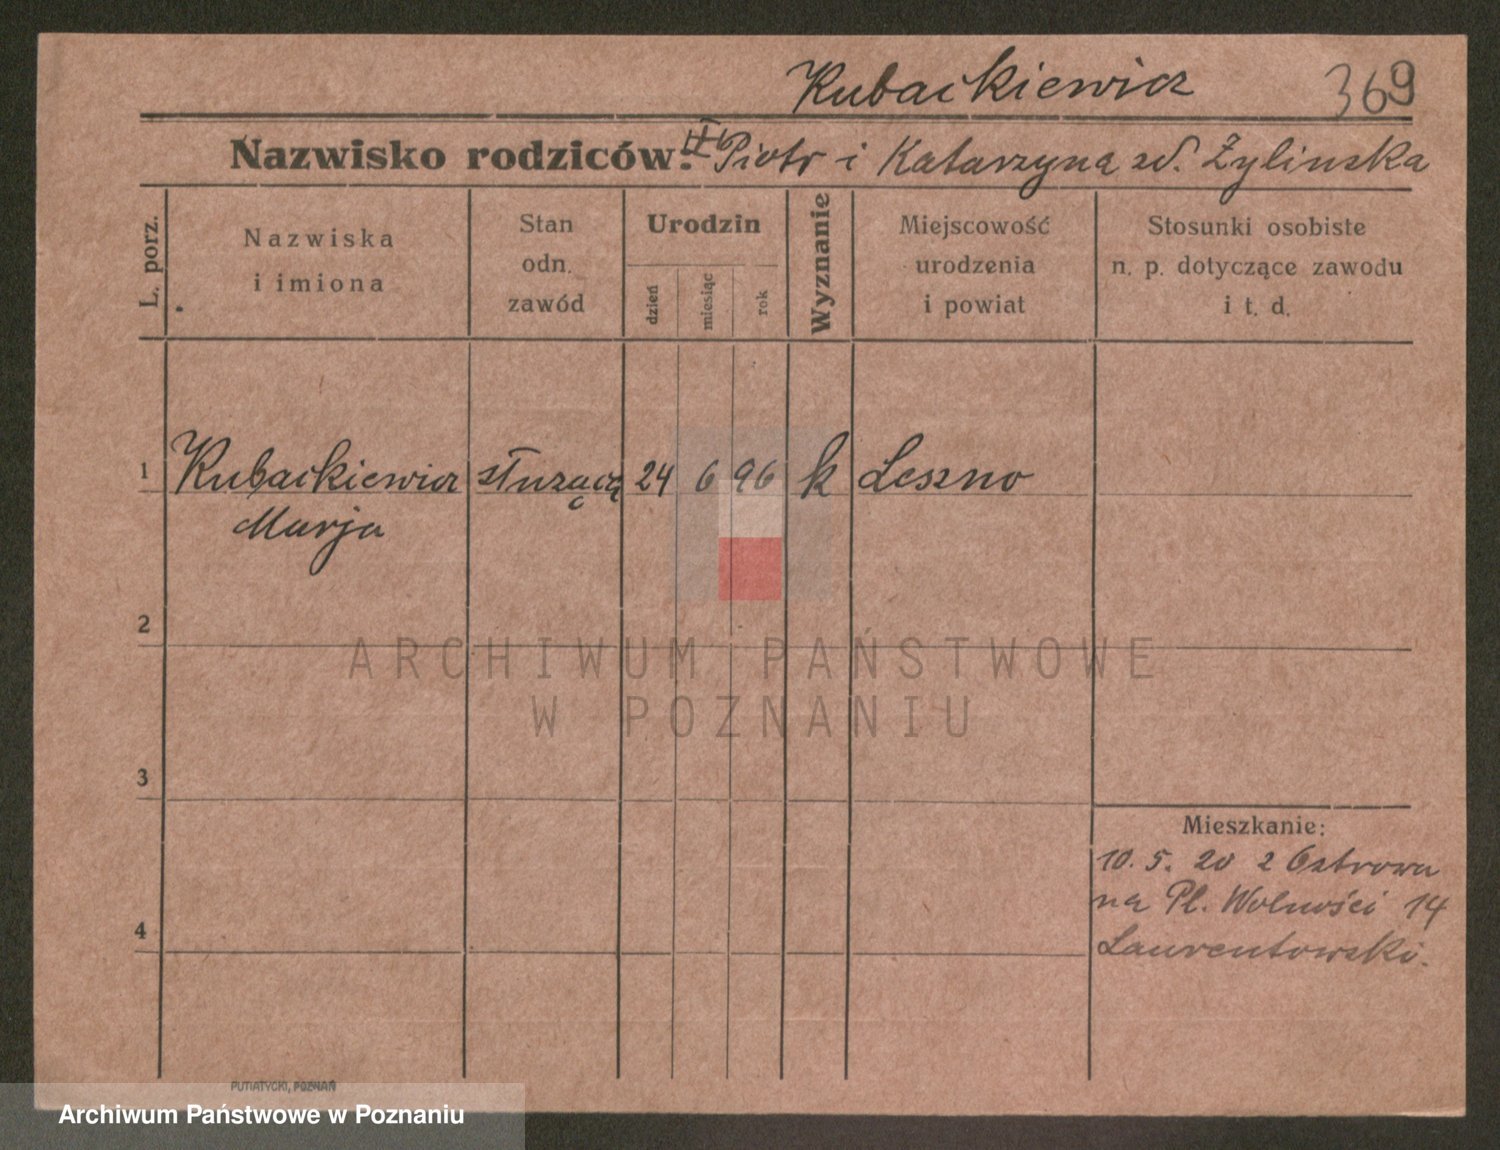 Kubackiewicz 369
Nazwisko rodziców: Piotr i Katarzyna zd. Żylinska
L. porz.
Nazwiska
i imiona
Stan
odn.
zawód
Urodzin
dzień
miesiąc
rok
Wyznanie
Miejscowość
urodzenia
i powiat
Stosunki osobiste
n. p. dotyczące zawodu
i t. d.
1 Kubackiewicz służącą 24 6 96 k Leszno
Marja
2
ARCHIWUM PAŃSTWOWE
W POZNANIU
3
Mieszkanie:
10. 5. 20 z Ostrowa
na Pl. Wolności 14
4
Laurentowski.
PUTIATYCKI, POZNAŃ
Archiwum Państwowe w Poznaniu